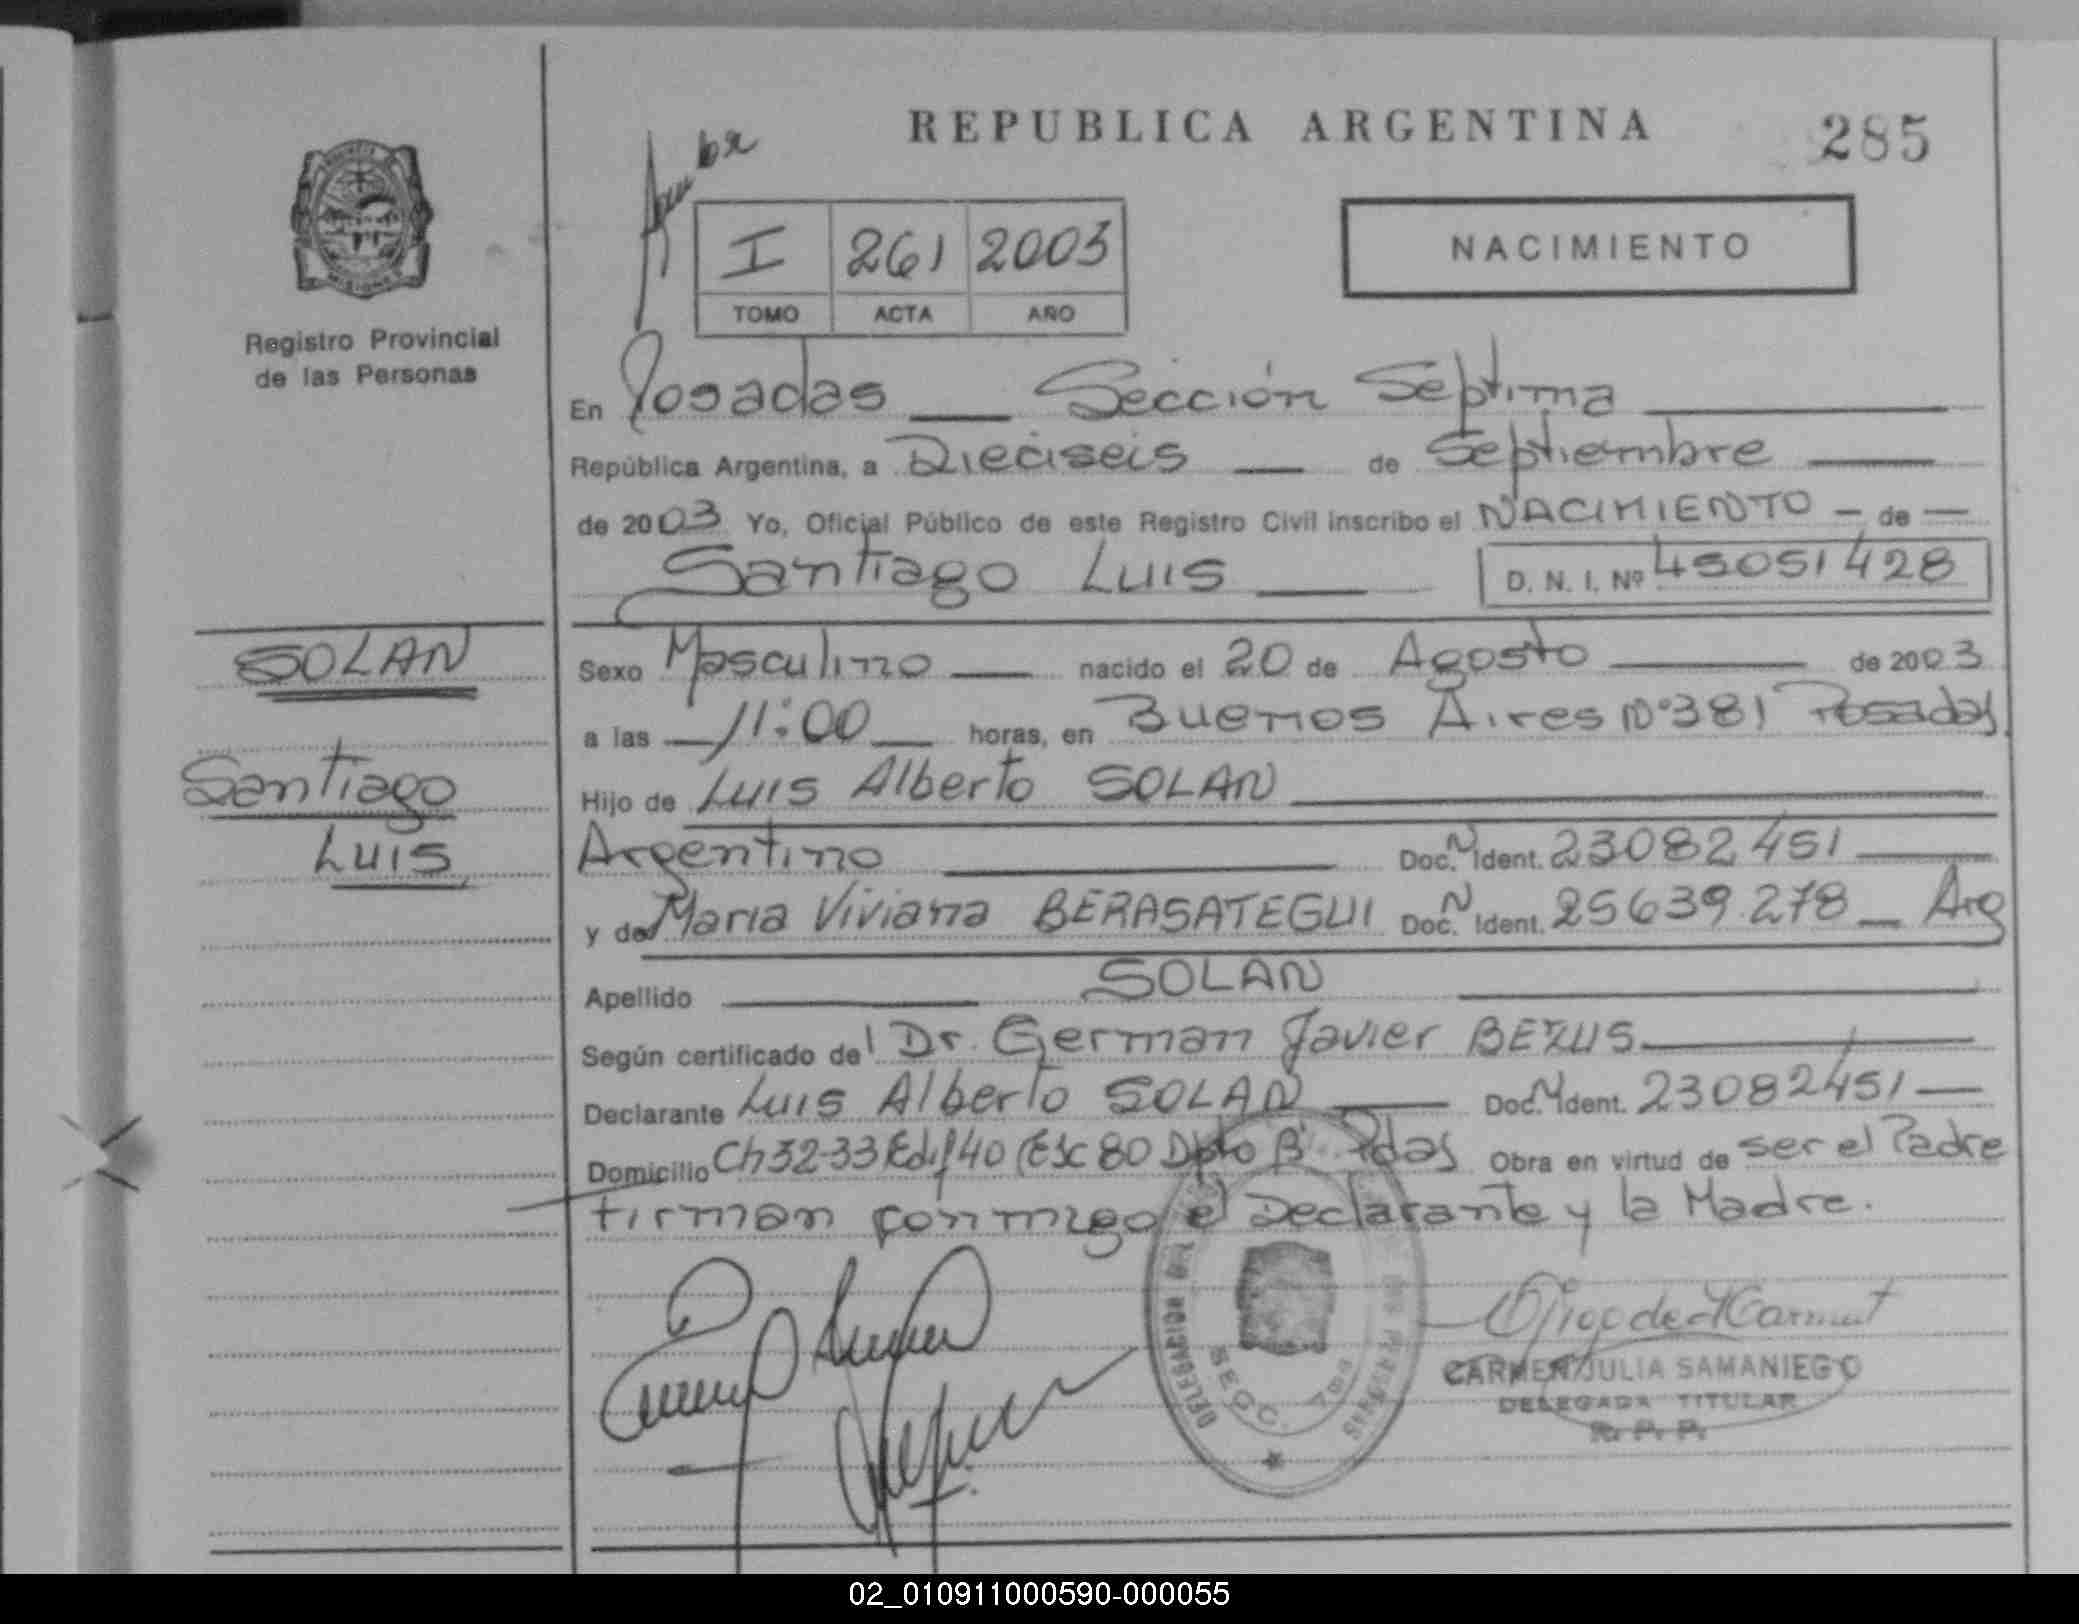 REPUBLICA ARGENTINA
285
I 261 2003
TOMO ACTA AÑO
NACIMIENTO
Registro Provincial
de las Personas
En Posadas Sección Septima
República Argentina, a Dieciseis de Septiembre
de 2003 Yo, Oficial Público de este Registro Civil inscribo el NACIMIENTO - de -
Santiago Luis D. N. I. Nº 45051428
SOLAN
Santiago
Luis
Sexo Masculino nacido el 20 de Agosto de 2003
a las 11:00 horas, en Buenos Aires Nº 381 Posadas
Hijo de Luis Alberto SOLAN
Argentino Doc. N Ident. 23082451
y de Maria Viviana BERASATEGUI Doc. N Ident. 25639278 Arg
Apellido SOLAN
Según certificado del Dr. German Javier BEZUS
Declarante Luis Alberto SOLAN Doc. N Ident. 23082451
Domicilio Ch 32-33 Edif 40 Esc 80 Dpto B Pdas Obra en virtud de ser el Padre
firman conmigo el Declarante y la Madre.
DELEGACION
SECC. 7ma
CARMEN JULIA SAMANIEGO
DELEGADA TITULAR
R. P. P.
02_010911000590-000055